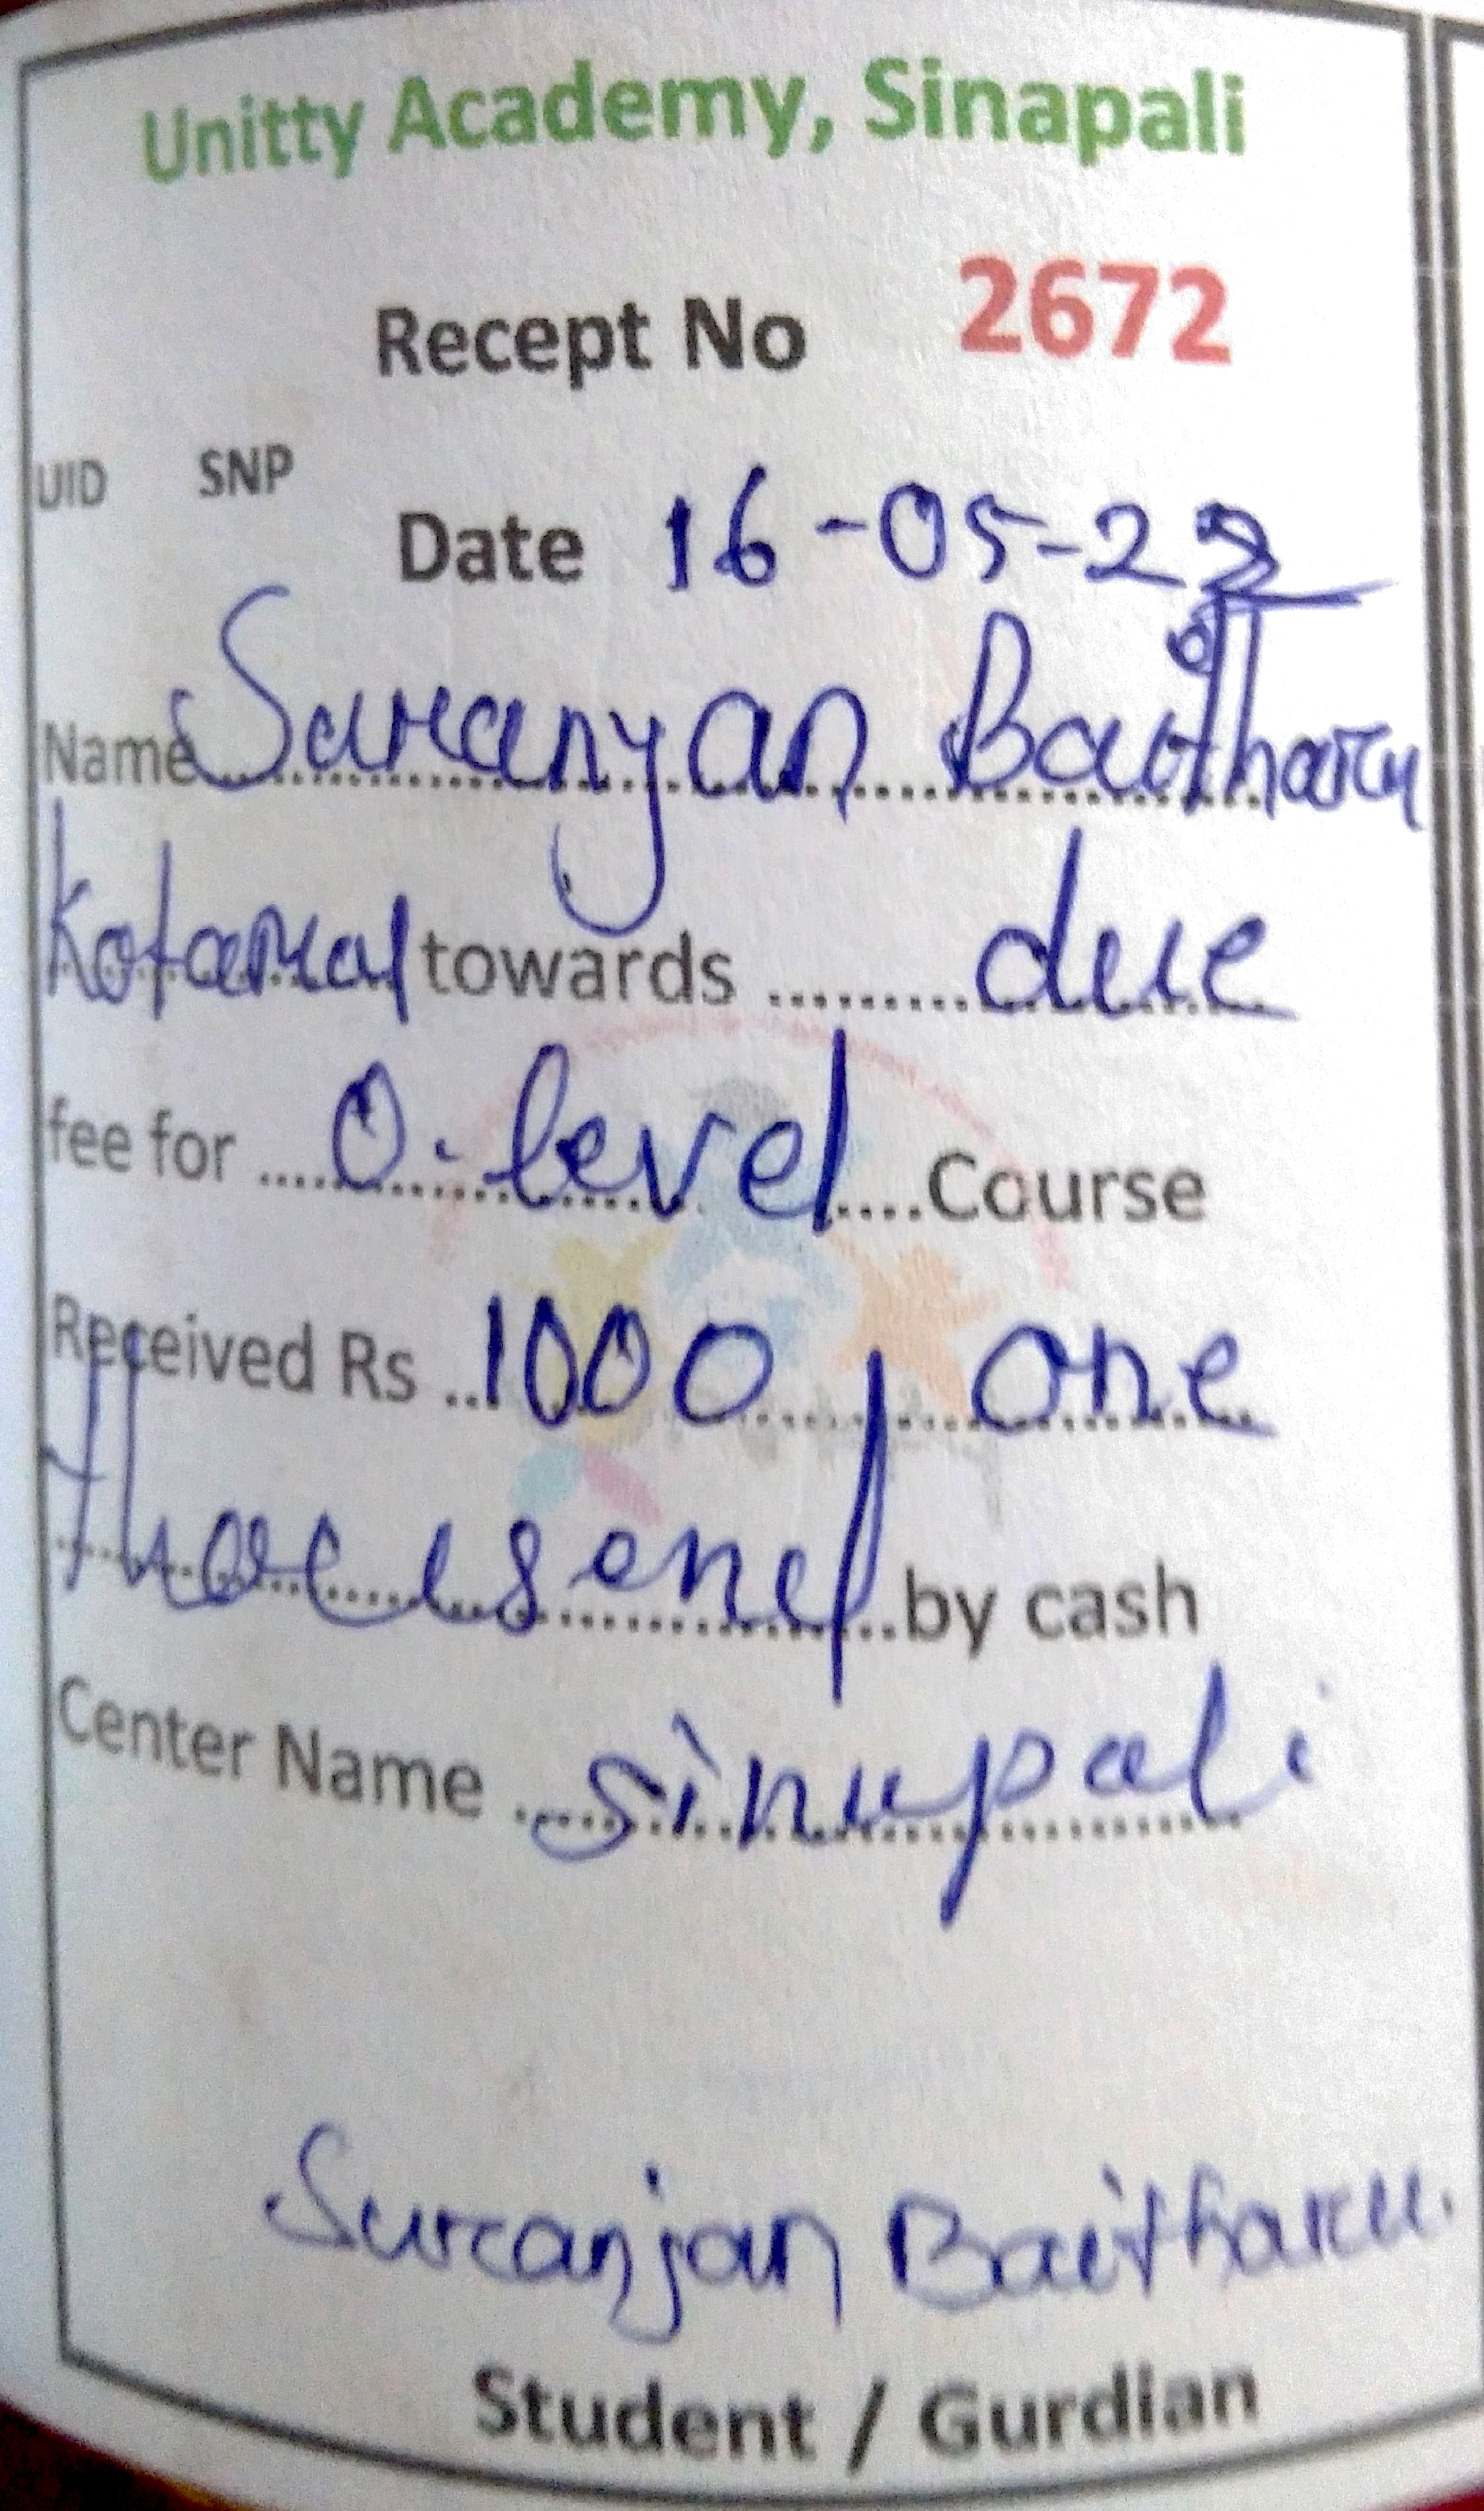 Unitty Academy, Sinapali
Recept No 2672
UID SNP
Date 16-05-22
Name Suranjan Baitharu
towards due
fee for O.level Course
Received Rs 1000, One
Thousand by cash
Center Name Sinapali
Suranjan Baitharu.
Student / Gurdian